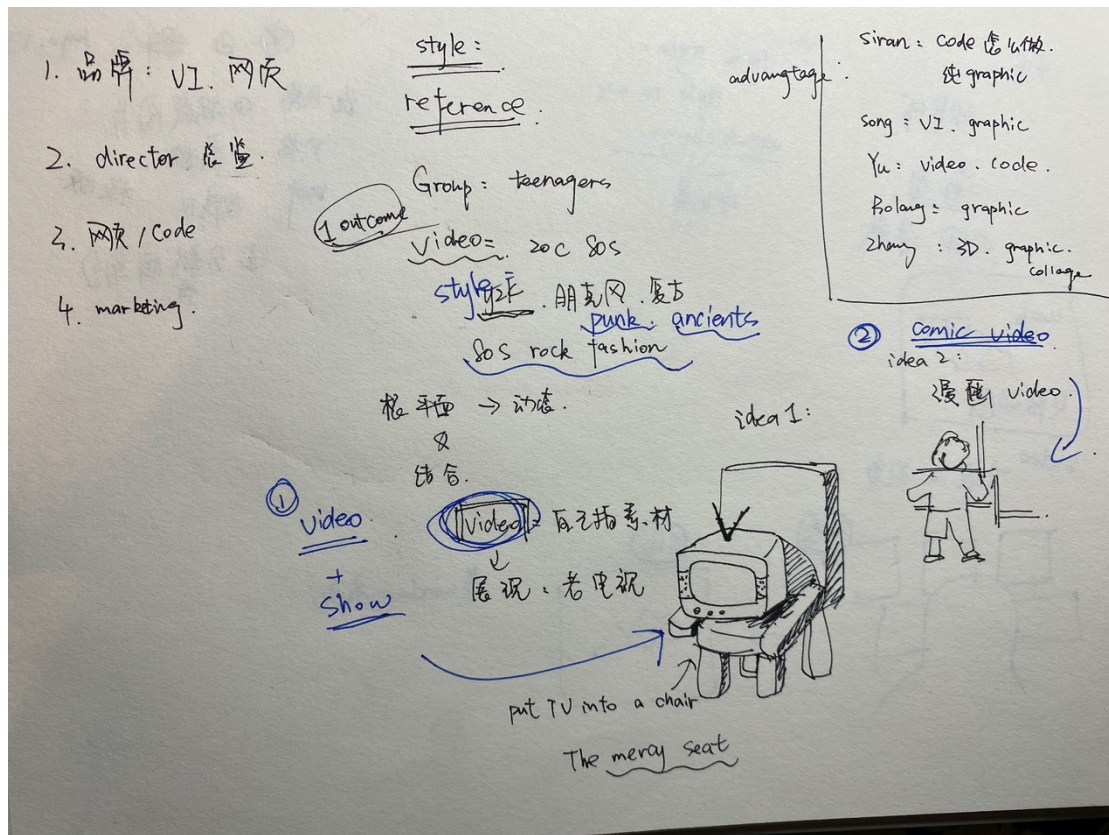 1. 品牌: VI. 网页
2. director 总监.
3. 网页/Code
4. marketing.
style:
reference.
Group: teenagers
1 outcome
video: 20C 80s
style y2k. 朋克风. 复古
punk. ancients
80s rock fashion
平面 → 动态.
&
结合.
① video.
+
show
video: 自己拍素材
展现: 老电视
idea 1:
put TV into a chair
The mercy seat
advangtage:
Siran: code 怎么做.
纯graphic
Song: VI. graphic
Yu: video. code.
Bolang: graphic
Zhang: 3D. graphic.
collage
② comic video
idea 2:
漫画 video.